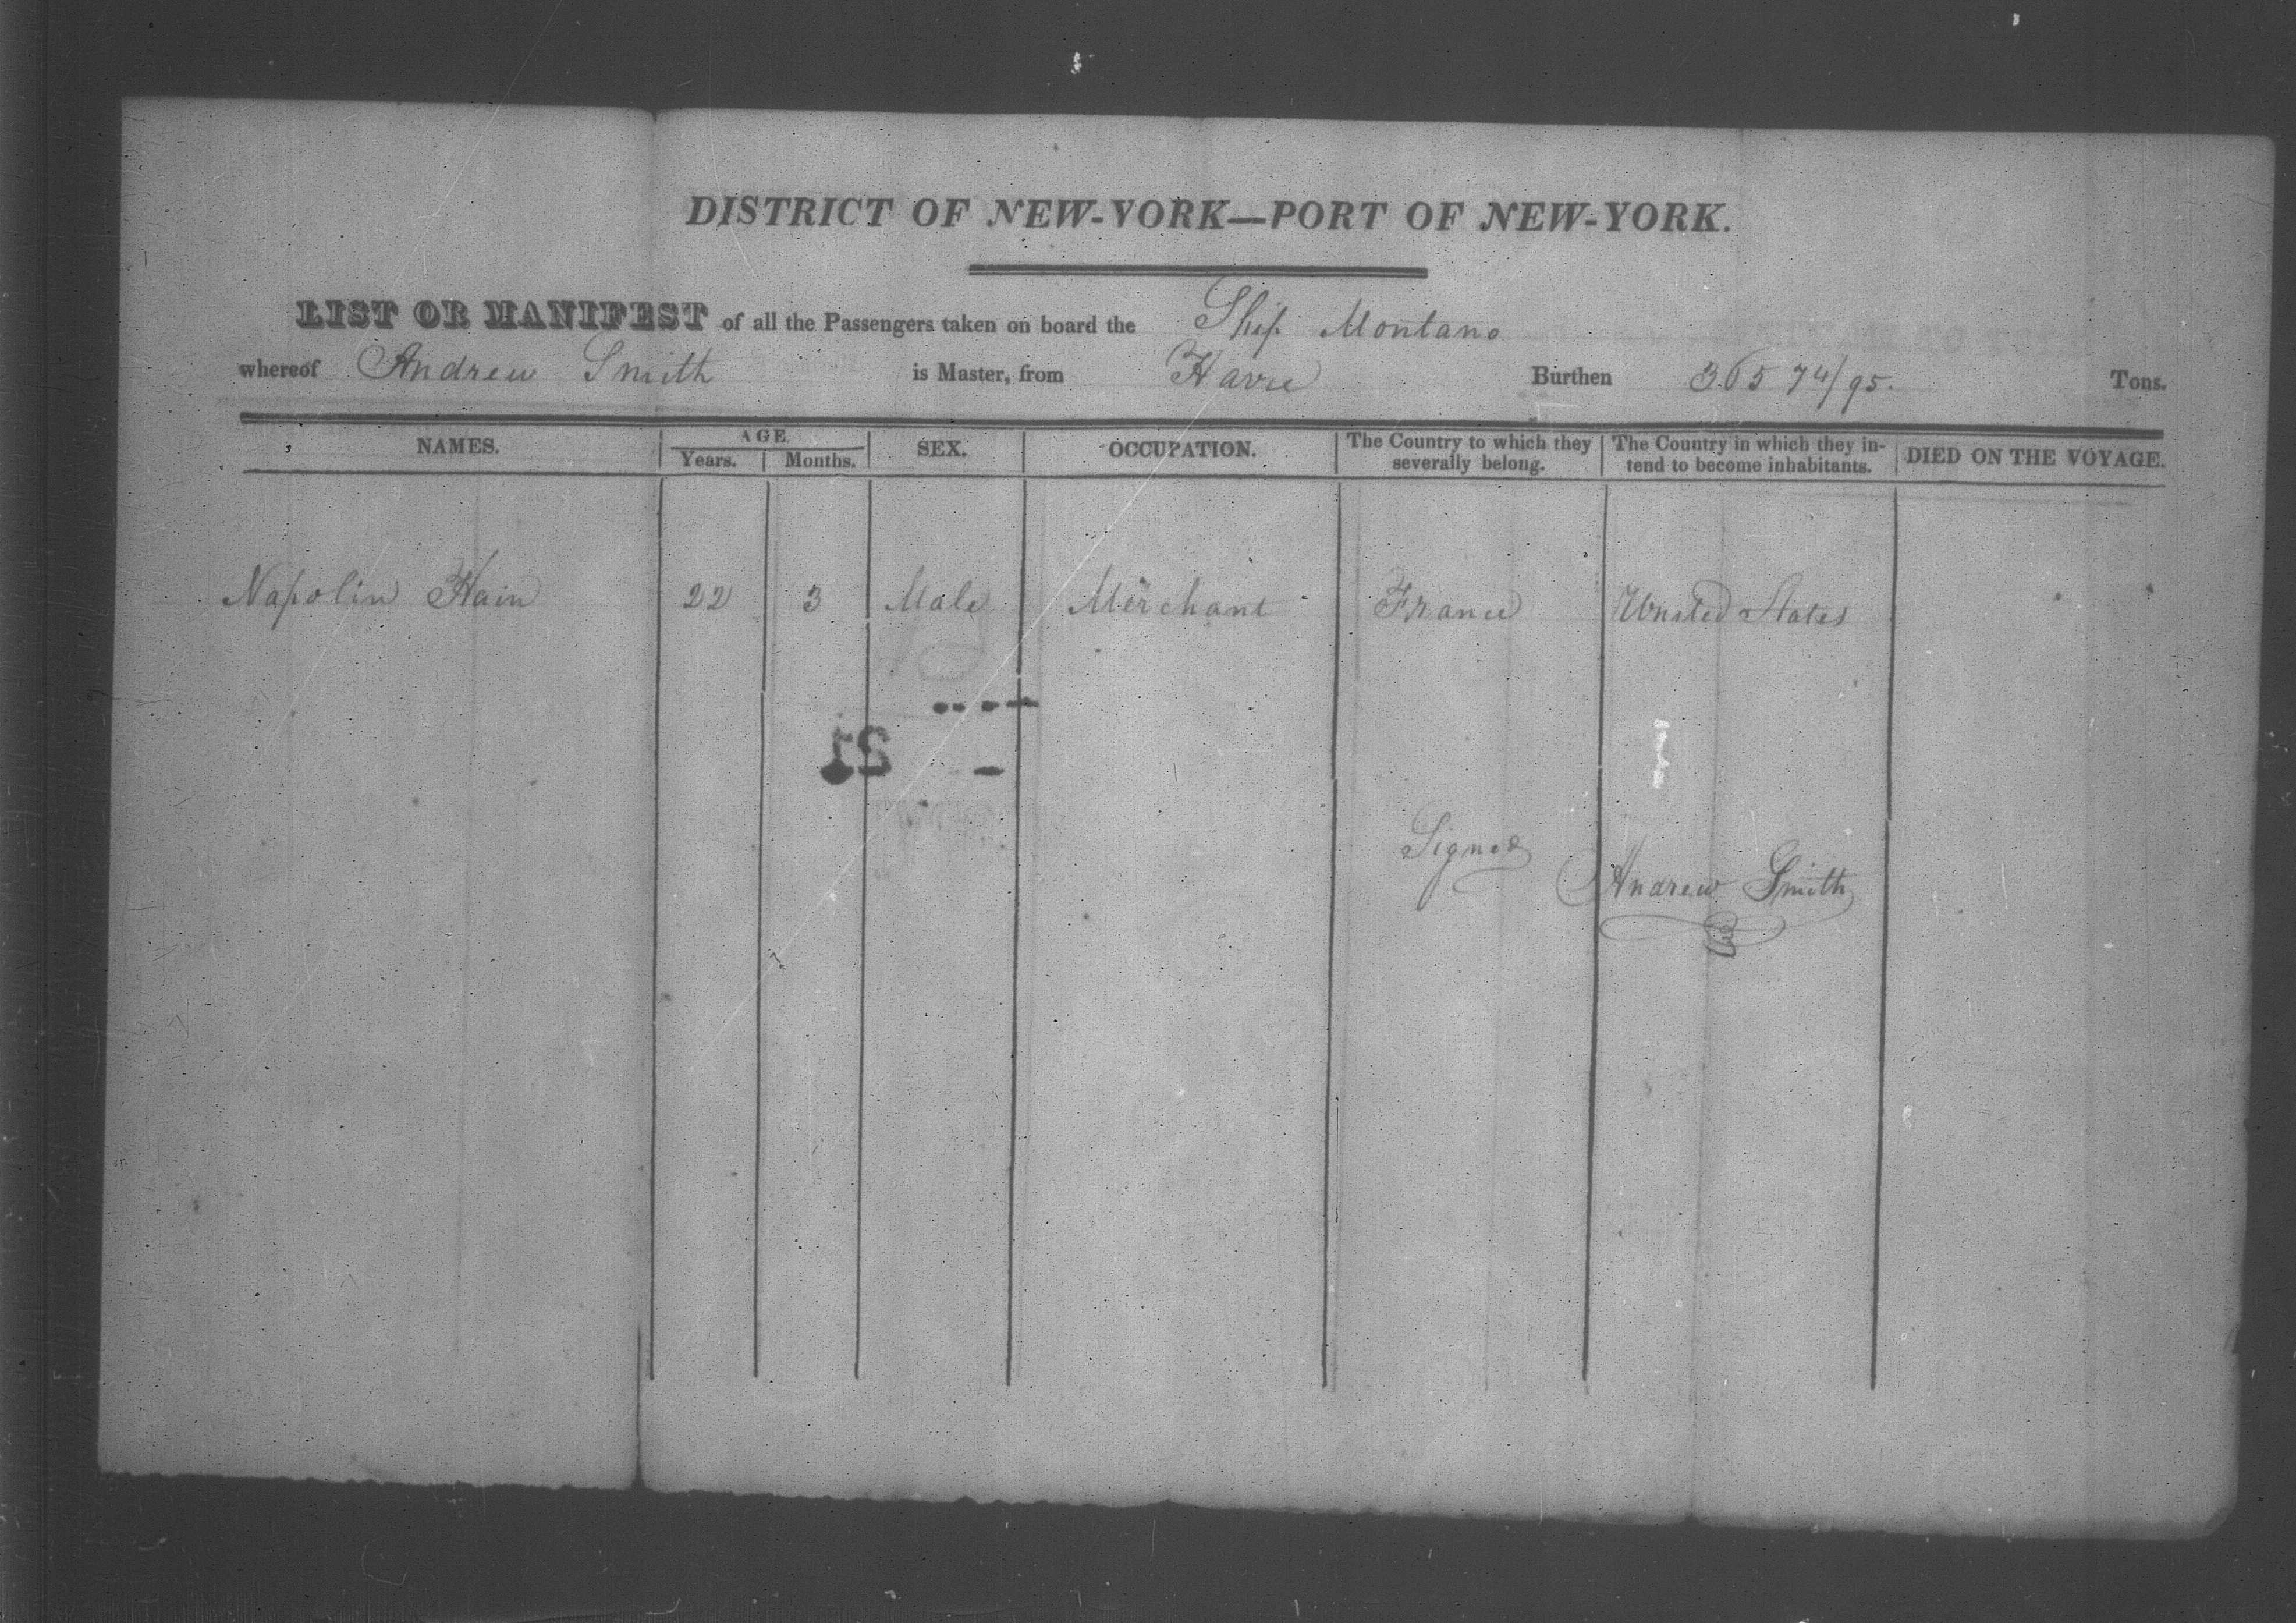 DISTRICT OF NEW-YORK—PORT OF NEW-YORK.
LIST OR MANIFEST of all the Passengers taken on board the Ship Montano
whereof Andrew Smith is Master, from Havre Burthen 365 74/95. Tons.
NAMES. AGE. Years. Months. SEX. OCCUPATION. The Country to which they severally belong. The Country in which they intend to become inhabitants. DIED ON THE VOYAGE.
Napolin Hain 22 3 Male Merchant France United States
21
Signed
Andrew Smith